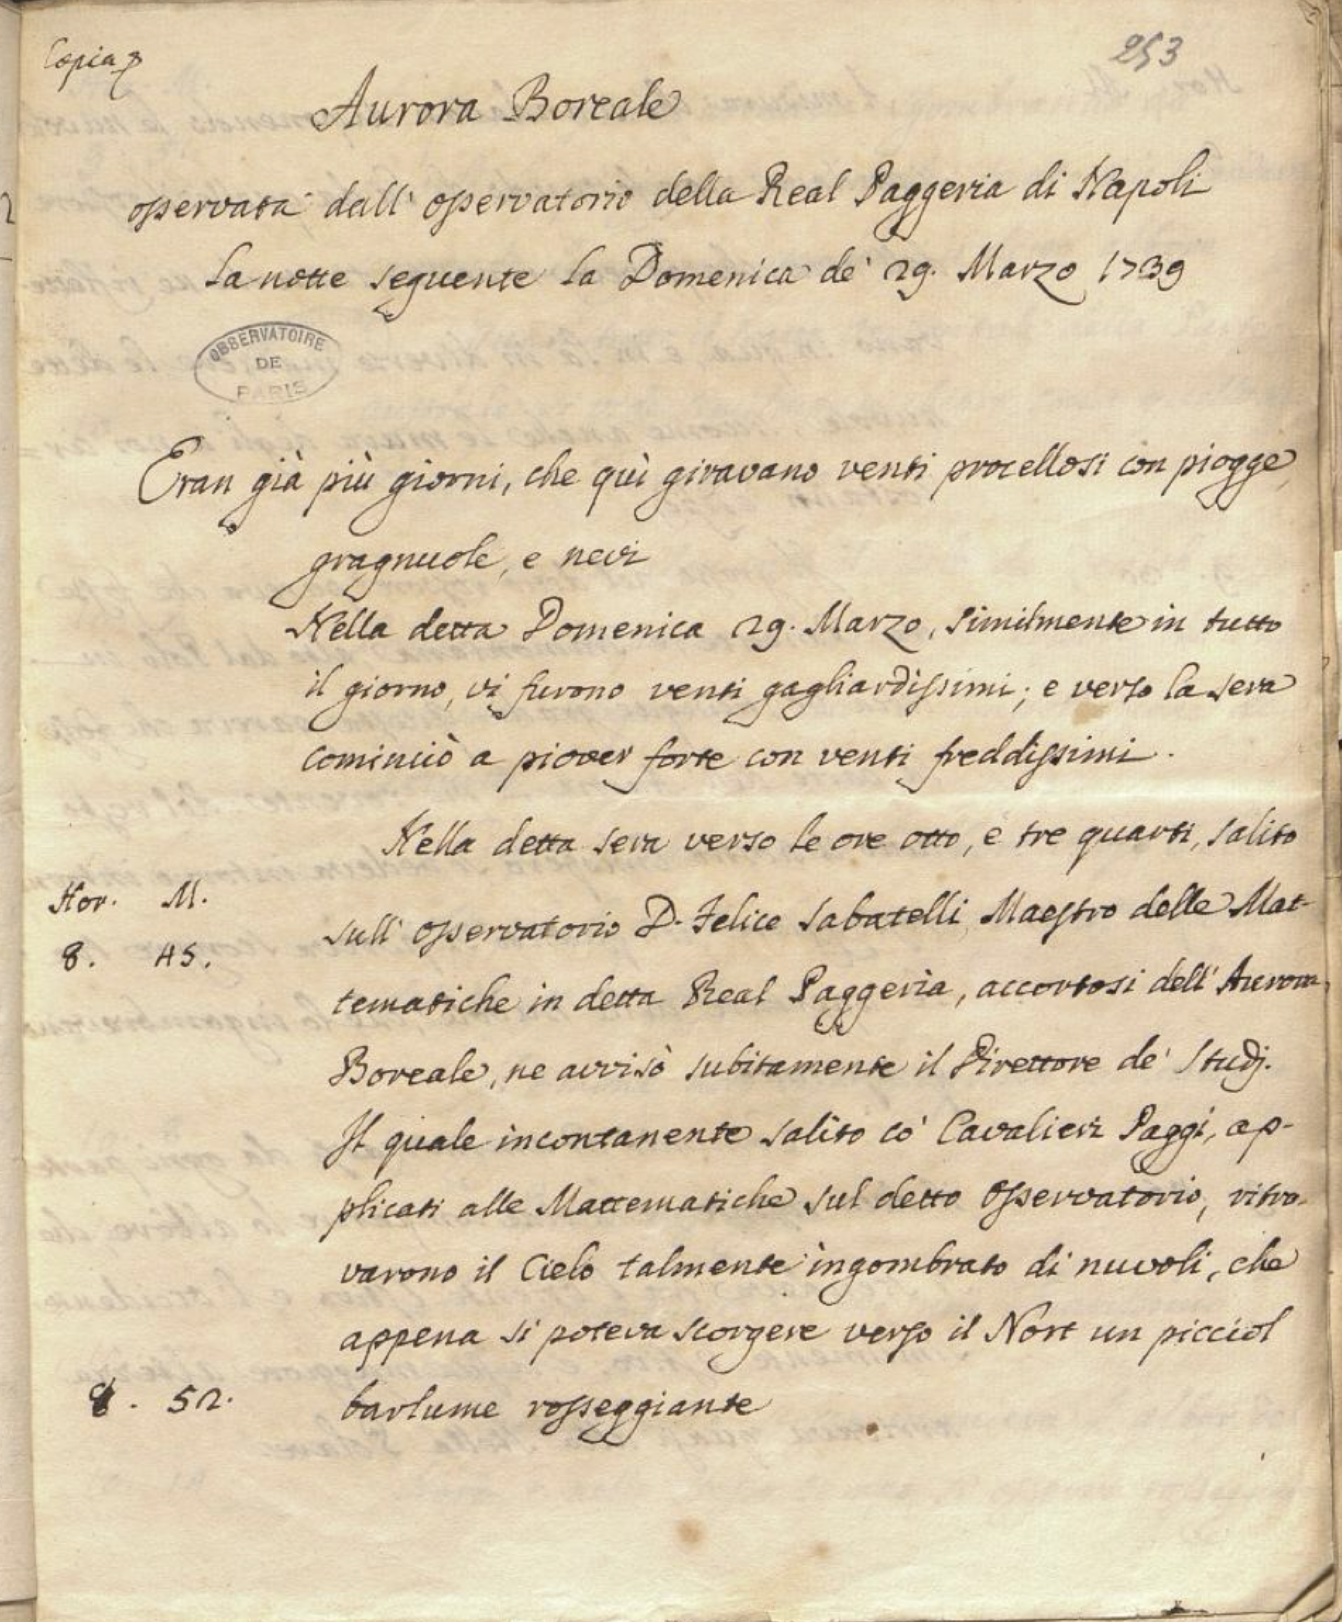 Copia
253
Aurora Boreale
osservata dall' osservatorio della Real Paggeria di Napoli
la notte seguente la Domenica de' 29. Marzo 1739
OBSERVATOIRE
DE
PARIS
Eran già più giorni, che quì giravano venti procellosi con piogge,
gragnuole, e nevi
Nella detta Domenica 29. Marzo, similmente in tutto
il giorno, vi furono venti gagliardissimi; e verso la sera
cominciò a piover forte con venti freddissimi.
Nella detta sera verso le ore otto, e tre quarti, salito
Hor. M.
sull' osservatorio D. Felice Sabatelli, Maestro delle Mat-
8. 45.
tematiche in detta Real Paggeria, accortosi dell' Aurora
Boreale, ne avvisò subitamente il Direttore de' Studj.
Il quale incontanente salito co' Cavalieri Paggi, ap-
plicati alle Mattematiche sul detto Osservatorio, ritro-
varono il Cielo talmente ingombrato di nuvoli, che
appena si poteva scorgere verso il Nort un picciol
8. 52. barlume rosseggiante